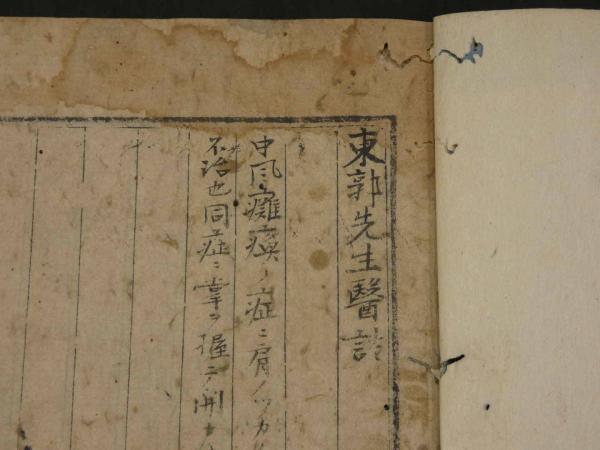 東郭先生醫話
中風癱瘓ノ症ニ肩ノツカ
不治也同症ニ掌ヲ握テ開